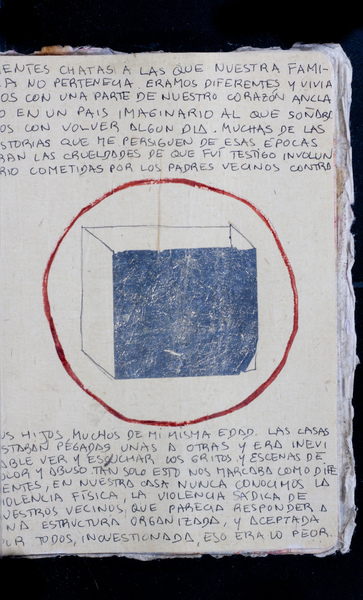 IENTES CHATAS A LAS QUE NUESTRA FAMI-
A NO PERTENECIA. ERAMOS DIFERENTES Y VIVIA
OS CON UNA PARTE DE NUESTRO CORAZÓN ANCLA
O EN UN PAIS IMAGINARIO AL QUE SOÑABA
OS CON VOLVER ALGUN DIA. MUCHAS DE LAS
STORIAS QUE ME PERSIGUEN DE ESAS ÉPOCAS
RAN LAS CRUELDADES DE QUE FUÍ TESTIGO INVOLUN
RIO COMETIDAS POR LOS PADRES VECINOS CONTRA
US HIJOS, MUCHOS DE MI MISMA EDAD. LAS CASAS
STABAN PEGADAS UNAS A OTRAS Y ERA INEVI
ABLE VER Y ESCUCHAR LOS GRITOS Y ESCENAS DE
OLOR Y ABUSO. TAN SOLO ESTO NOS MARCABA COMO DIFE
ENTES, EN NUESTRA CASA NUNCA CONOCIMOS LA
IOLENCIA FÍSICA, LA VIOLENCIA SÁDICA DE
UESTROS VECINOS, QUE PARECIA RESPONDER A
NA ESTRUCTURA ORGANIZADA, Y ACEPTADA
OR TODOS, INCUESTIONADA, ESO ERA LO PEOR...